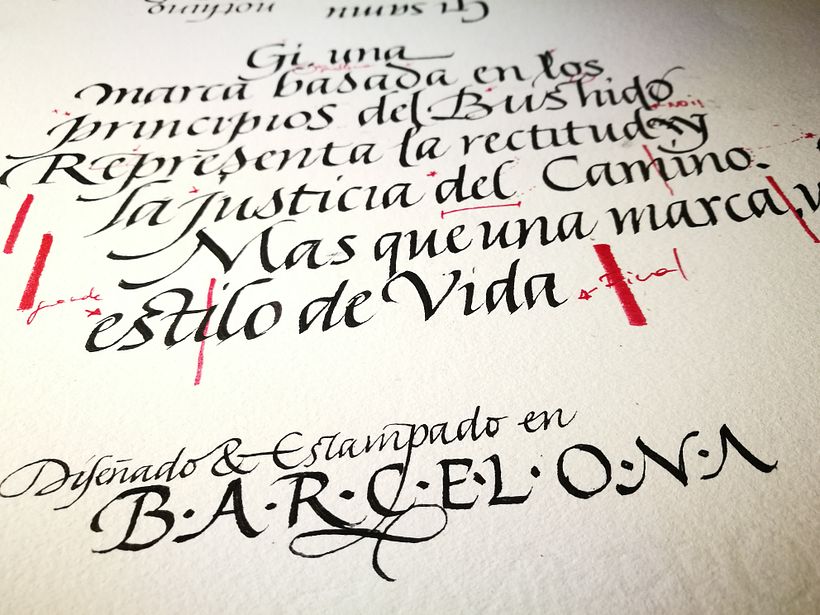 Gi. una
marca basada en los
principios del Bushido
Representa la rectitud y
la justicia del Camino.
Mas que una marca,
estilo de Vida
Diseñado & Estampado en
B·A·R·C·E·L·O·N·A